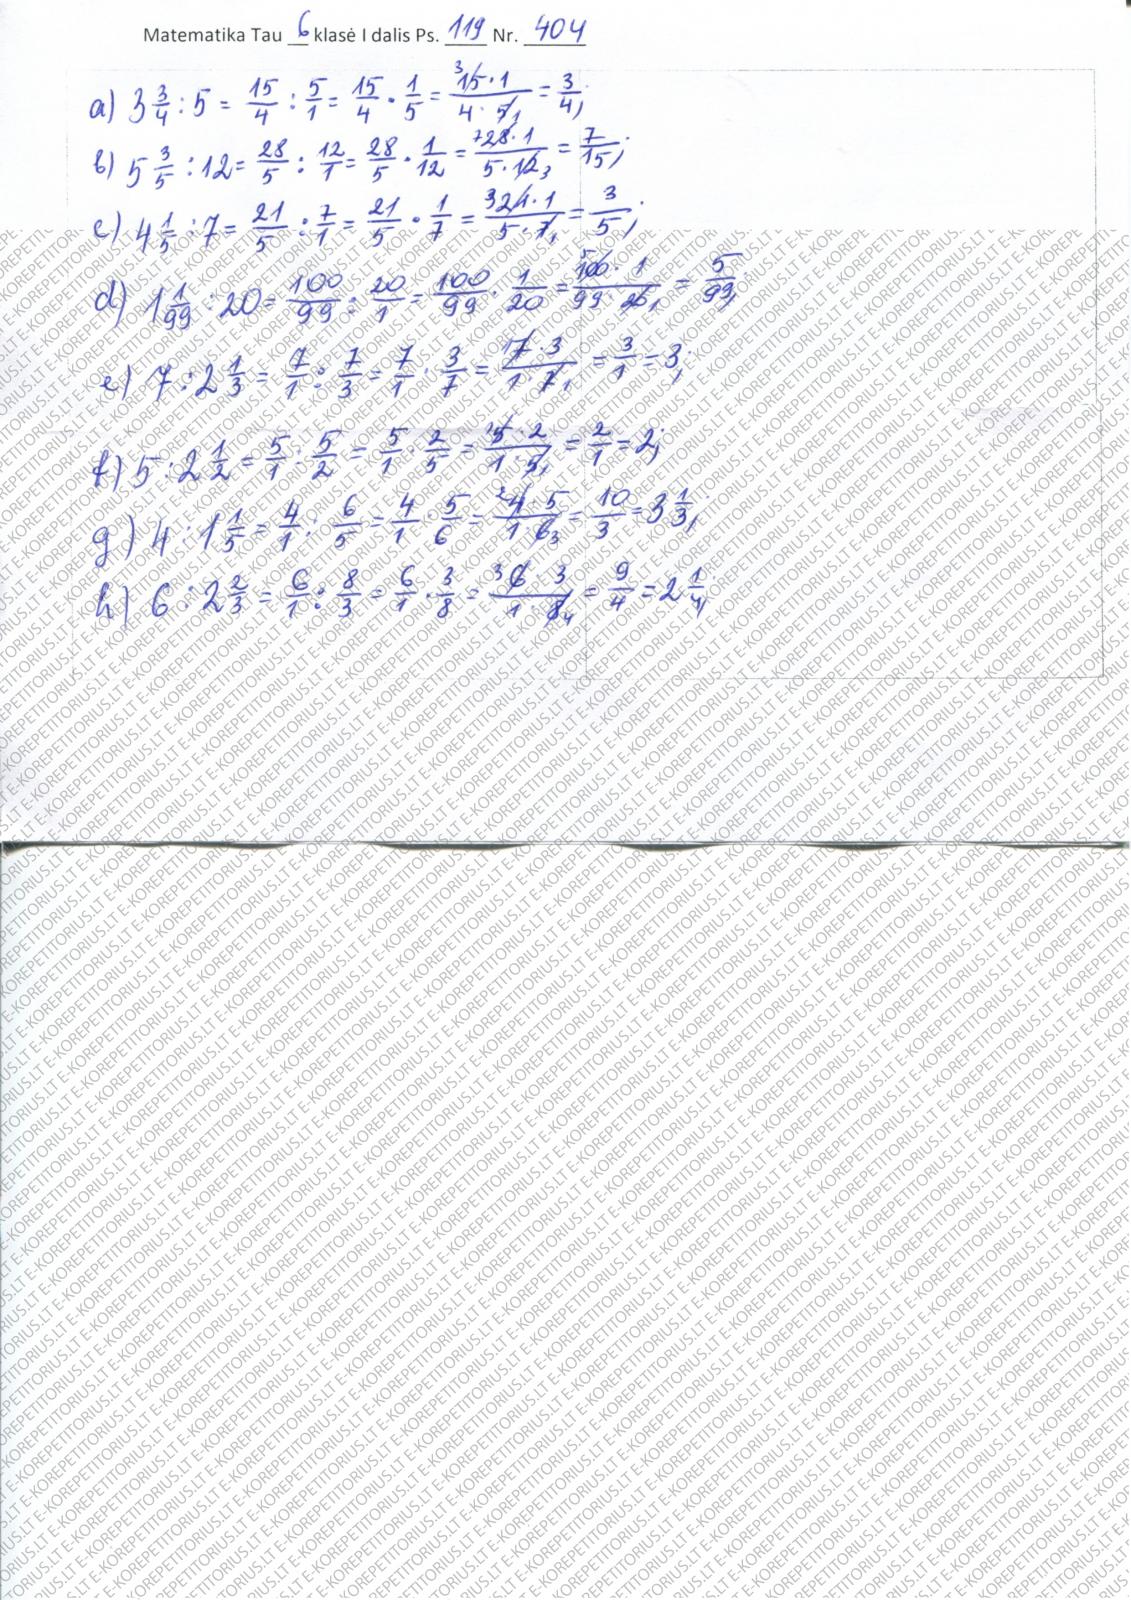 Matematika Tau 6 klasė I dalis Ps. 119 Nr. 404
a) 3 3/4 : 5 = 15/4 : 5/1 = 15/4 · 1/5 = ³15·1/4·5₁ = 3/4;
b) 5 3/5 : 12 = 28/5 : 12/1 = 28/5 · 1/12 = ⁷28·1/5·12₃ = 7/15;
c) 4 1/5 : 7 = 21/5 : 7/1 = 21/5 · 1/7 = ³21·1/5·7₁ = 3/5;
d) 1 1/99 : 20 = 100/99 : 20/1 = 100/99 · 1/20 = ⁵100·1/99·20₁ = 5/99;
e) 7 : 2 1/3 = 7/1 : 7/3 = 7/1 · 3/7 = ¹7·3/1·7₁ = 3/1 = 3;
f) 5 : 2 1/2 = 5/1 : 5/2 = 5/1 · 2/5 = ¹5·2/1·5₁ = 2/1 = 2;
g) 4 : 1 1/5 = 4/1 : 6/5 = 4/1 · 5/6 = ²4·5/1·6₃ = 10/3 = 3 1/3;
h) 6 : 2 2/3 = 6/1 : 8/3 = 6/1 · 3/8 = ³6·3/1·8₄ = 9/4 = 2 1/4;
E-KOREPETITORIUS.LT